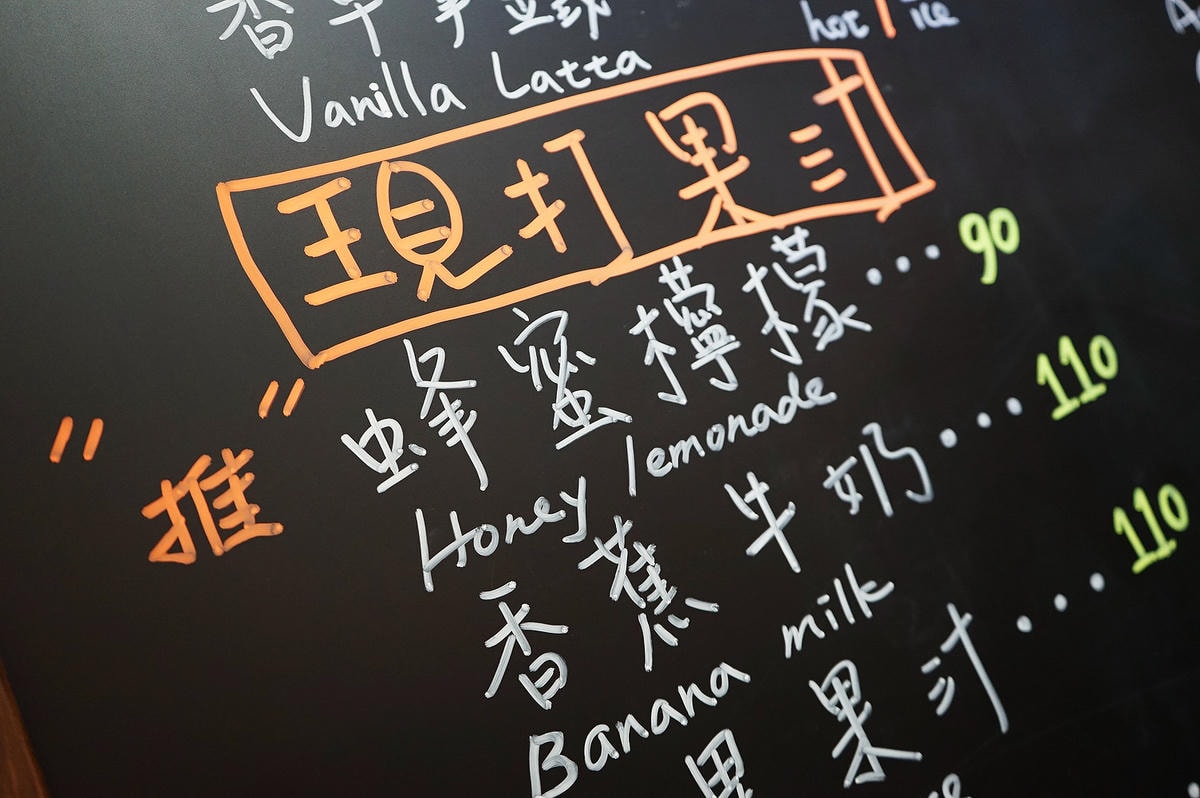 香草拿鐵
hot / ice
Vanilla Latta
現打果汁
蜂蜜檸檬...90
Honey lemonade
"推"
香蕉牛奶...110
Banana milk
果汁...110